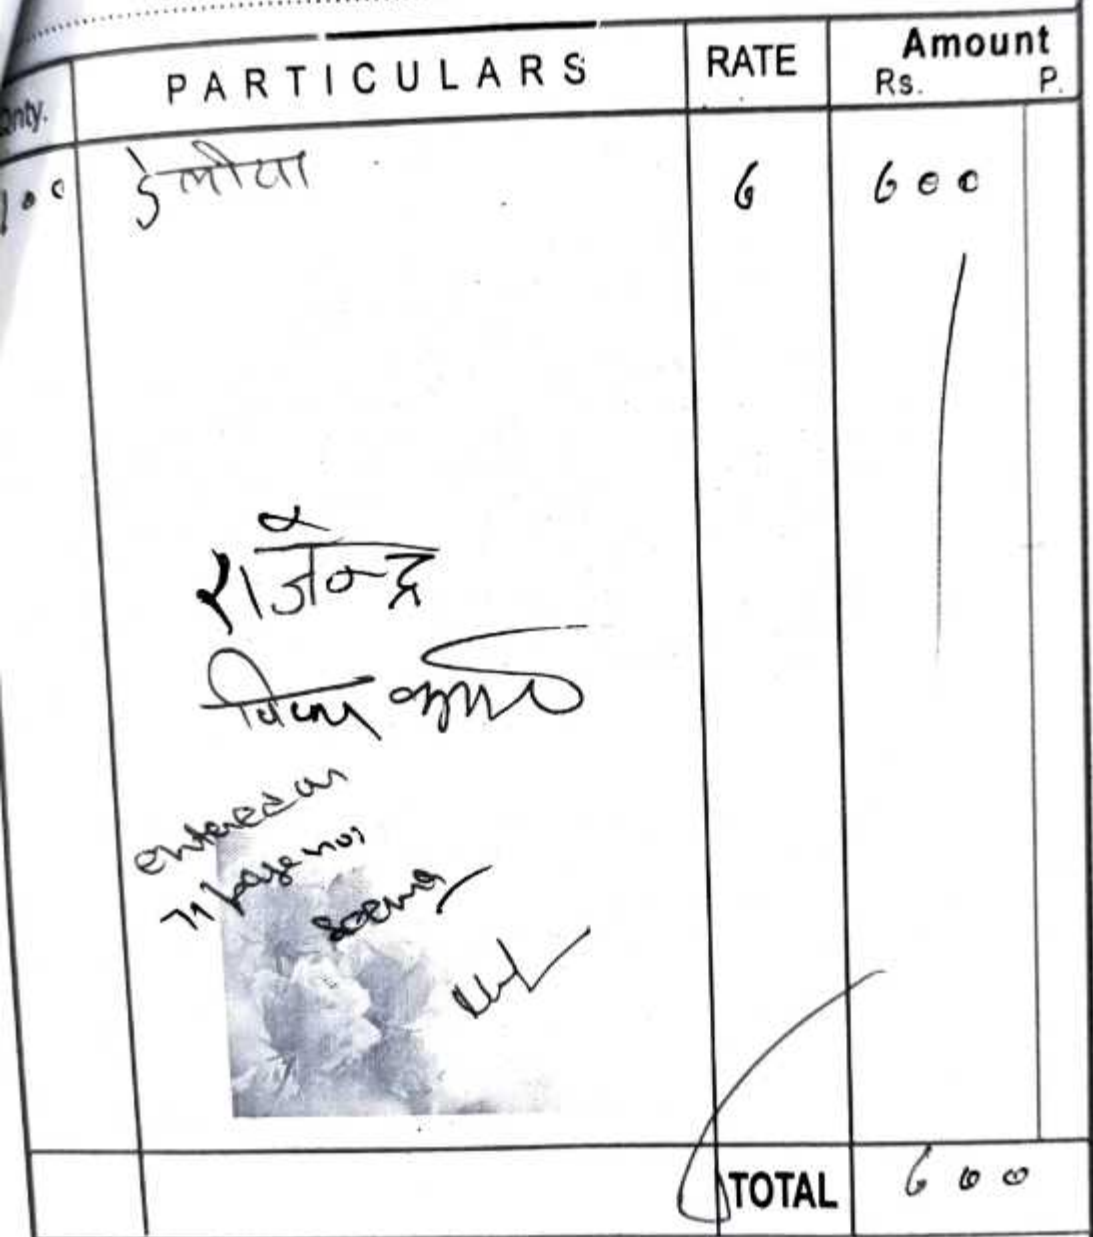 Qnty. PARTICULARS RATE Amount
Rs. P.
100 डेलीया 6 600
राजेन्द्र
विजय कुमार
entered on
71 page no
seema
TOTAL 600